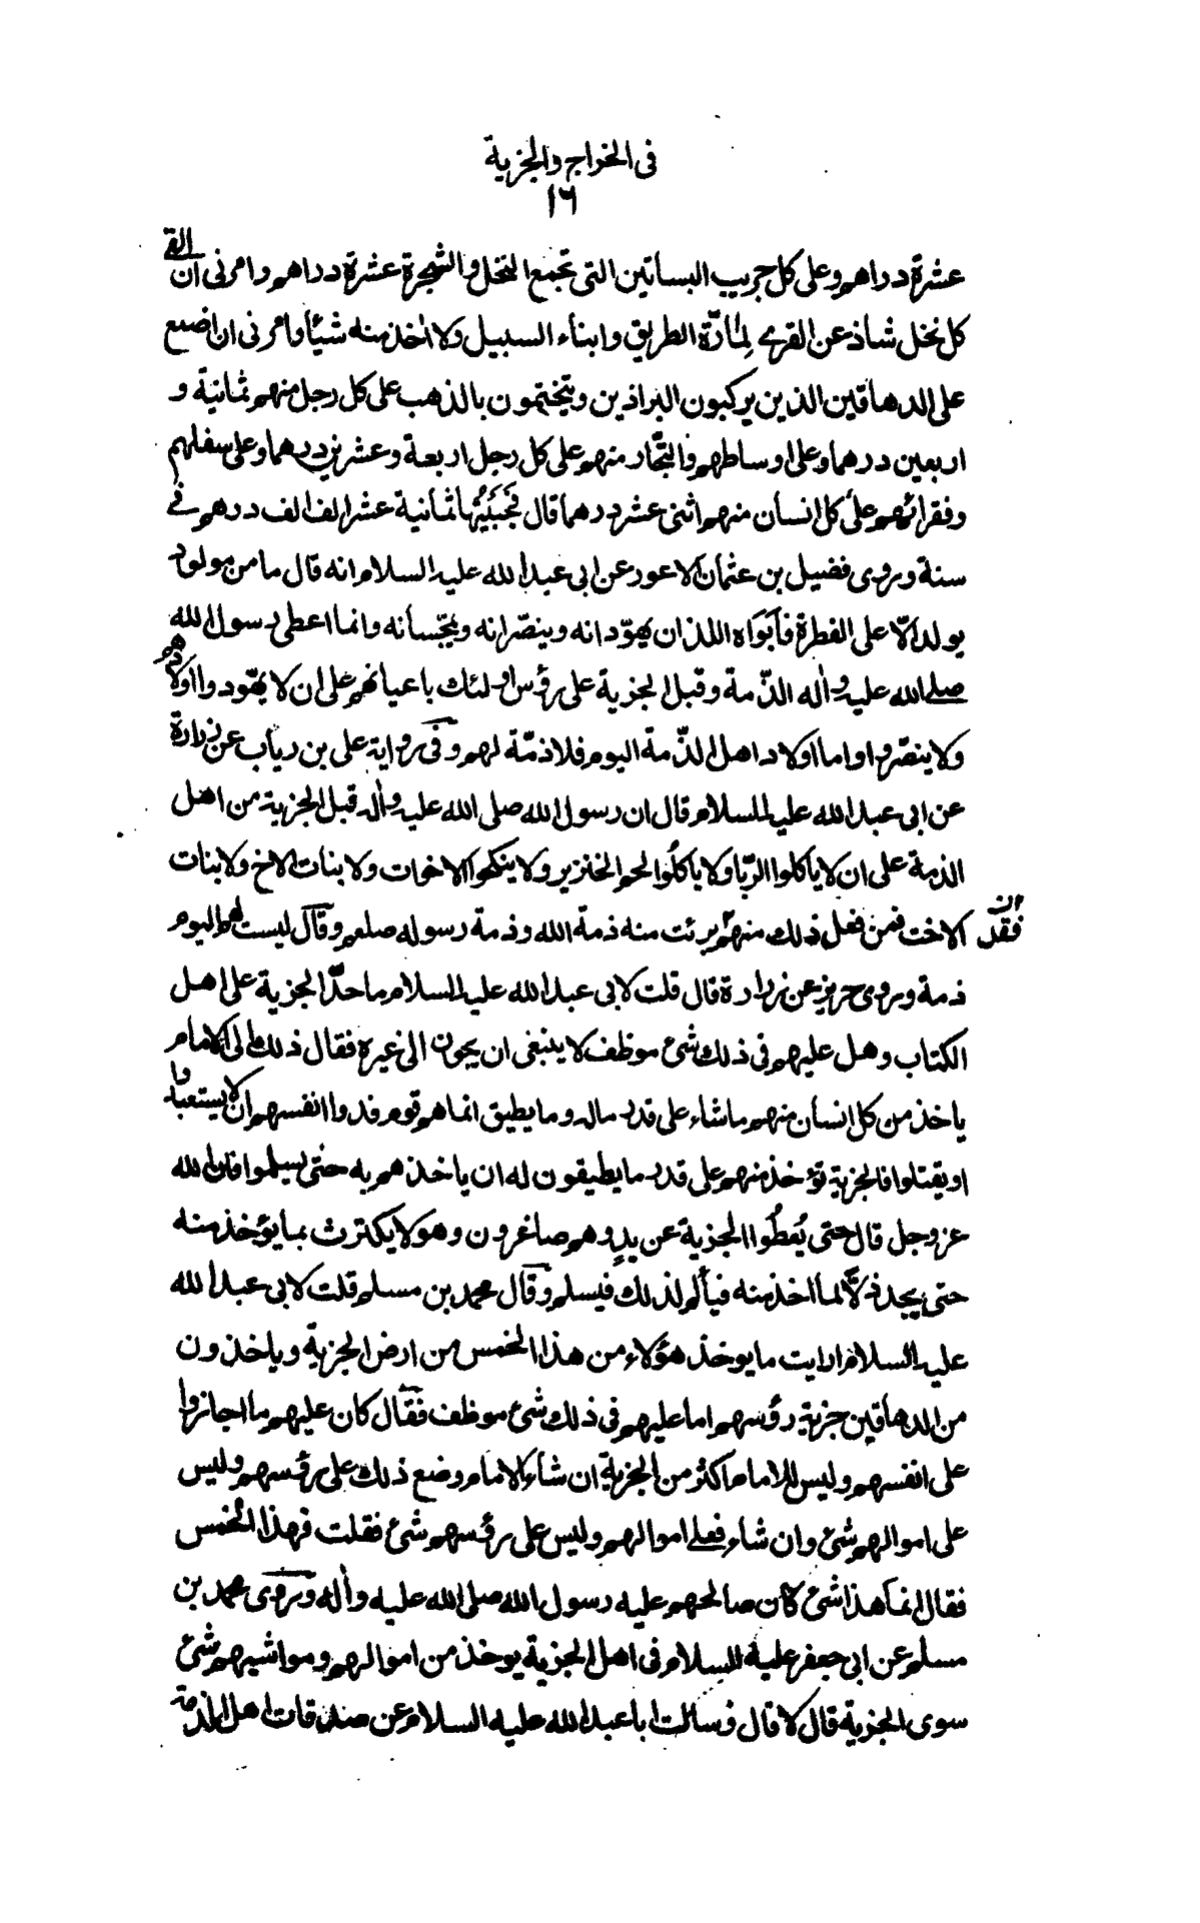 فى الخراج والجزية
١٦
عشرة دراهم وعلى كل جريب البساتين التى تجمع النخل والشجرة عشرة دراهم وامرنى ان القى
كل نخل شاذ عن القرى لمارّة الطريق وابناء السبيل ولا اٰخذ منه شيئا وامرنى ان اضع
على الدهاقين الذين يركبون البراذين ويتختمون بالذهب على كل رجل منهم ثمانية و
اربعين درهما وعلى اوساطهم والتجّار منهم على كل رجل اربعة وعشرين درهما وعلى سفلهم
وفقرائهم على كل انسان منهم اثنى عشر درهما قال فَجَبَيْتُها ثمانية عشر الف الف درهم فى
سنة وروى فضيل بن عثمان الاعور عن ابى عبد الله عليه السلام انه قال ما من مولود
يولد الّا على الفطرة فاَبَوَاه اللذان يهوّدانه وينصّرانه ويمجّسانه وانما اعطى رسول الله
صلى الله عليه واٰله الذّمة وقبل الجزية على رؤس اولئك باعيانهم على ان لا يهوّدوا اولادهم
ولا ينصّروا واما اولاد اهل الذّمة اليوم فلا ذمّة لهم وفى رواية على بن رياب عن زرارة
عن ابى عبد الله عليه السلام قال ان رسول الله صلى الله عليه واٰله قبل الجزية من اهل
الذمة على ان لا ياكلوا الرّبا ولا ياكلُوا لحم الخنزير ولا ينكحوا الاخوات ولا بنات الاخ ولا بنات
الاخت فمن فعل ذلك منهم برئت منه ذمة الله وذمة رسوله صلعم وقال ليست لهم اليوم
فقد
ذمة وروى حريز عن زرارة قال قلت لابى عبد الله عليه السلام ما حدّ الجزية على اهل
الكتاب وهل عليهم فى ذلك شئ موظف لا ينبغى ان يجوز الى غيره فقال ذلك الى الامام
ياخذ من كل انسان منهم ما شاء على قدر ماله وما يطيق انما هم قوم فدوا انفسهم ان لا يستعبدوا
او يقتلوا فالجزية تؤخذ منهم على قدر ما يطيقون له ان ياخذهم به حتى يسلموا فان الله
عز وجل قال حتى يُعطُوا الجزية عن يدٍ وهم صاغرون وهو لا يكترث بما يؤخذ منه
حتى يجد ذلّا لما اخذ منه فيألم لذلك فيسلم وقال محمد بن مسلم قلت لابى عبد الله
عليه السلام ارايت ما يوخذ هؤلاء من هذا الخمس من ارض الجزية وياخذون
من الدهاقين جزية رؤسهم اما عليهم فى ذلك شئ موظف فقال كان عليهم ما اجازوا
على انفسهم وليس للامام اكثر من الجزية ان شاء الامام وضع ذلك على رؤسهم وليس
على اموالهم شئ وان شاء فعلى اموالهم وليس على رؤسهم شئ فقلت فهذا الخمس
فقال انما هذا شئ كان صالحهم عليه رسول الله صلى الله عليه واٰله وروى محمد بن
مسلم عن ابى جعفر عليه السلام فى اهل الجزية يوخذ من اموالهم ومواشيهم شئ
سوى الجزية قال لا قال وسالت ابا عبد الله عليه السلام عن صدقات اهل الذمة